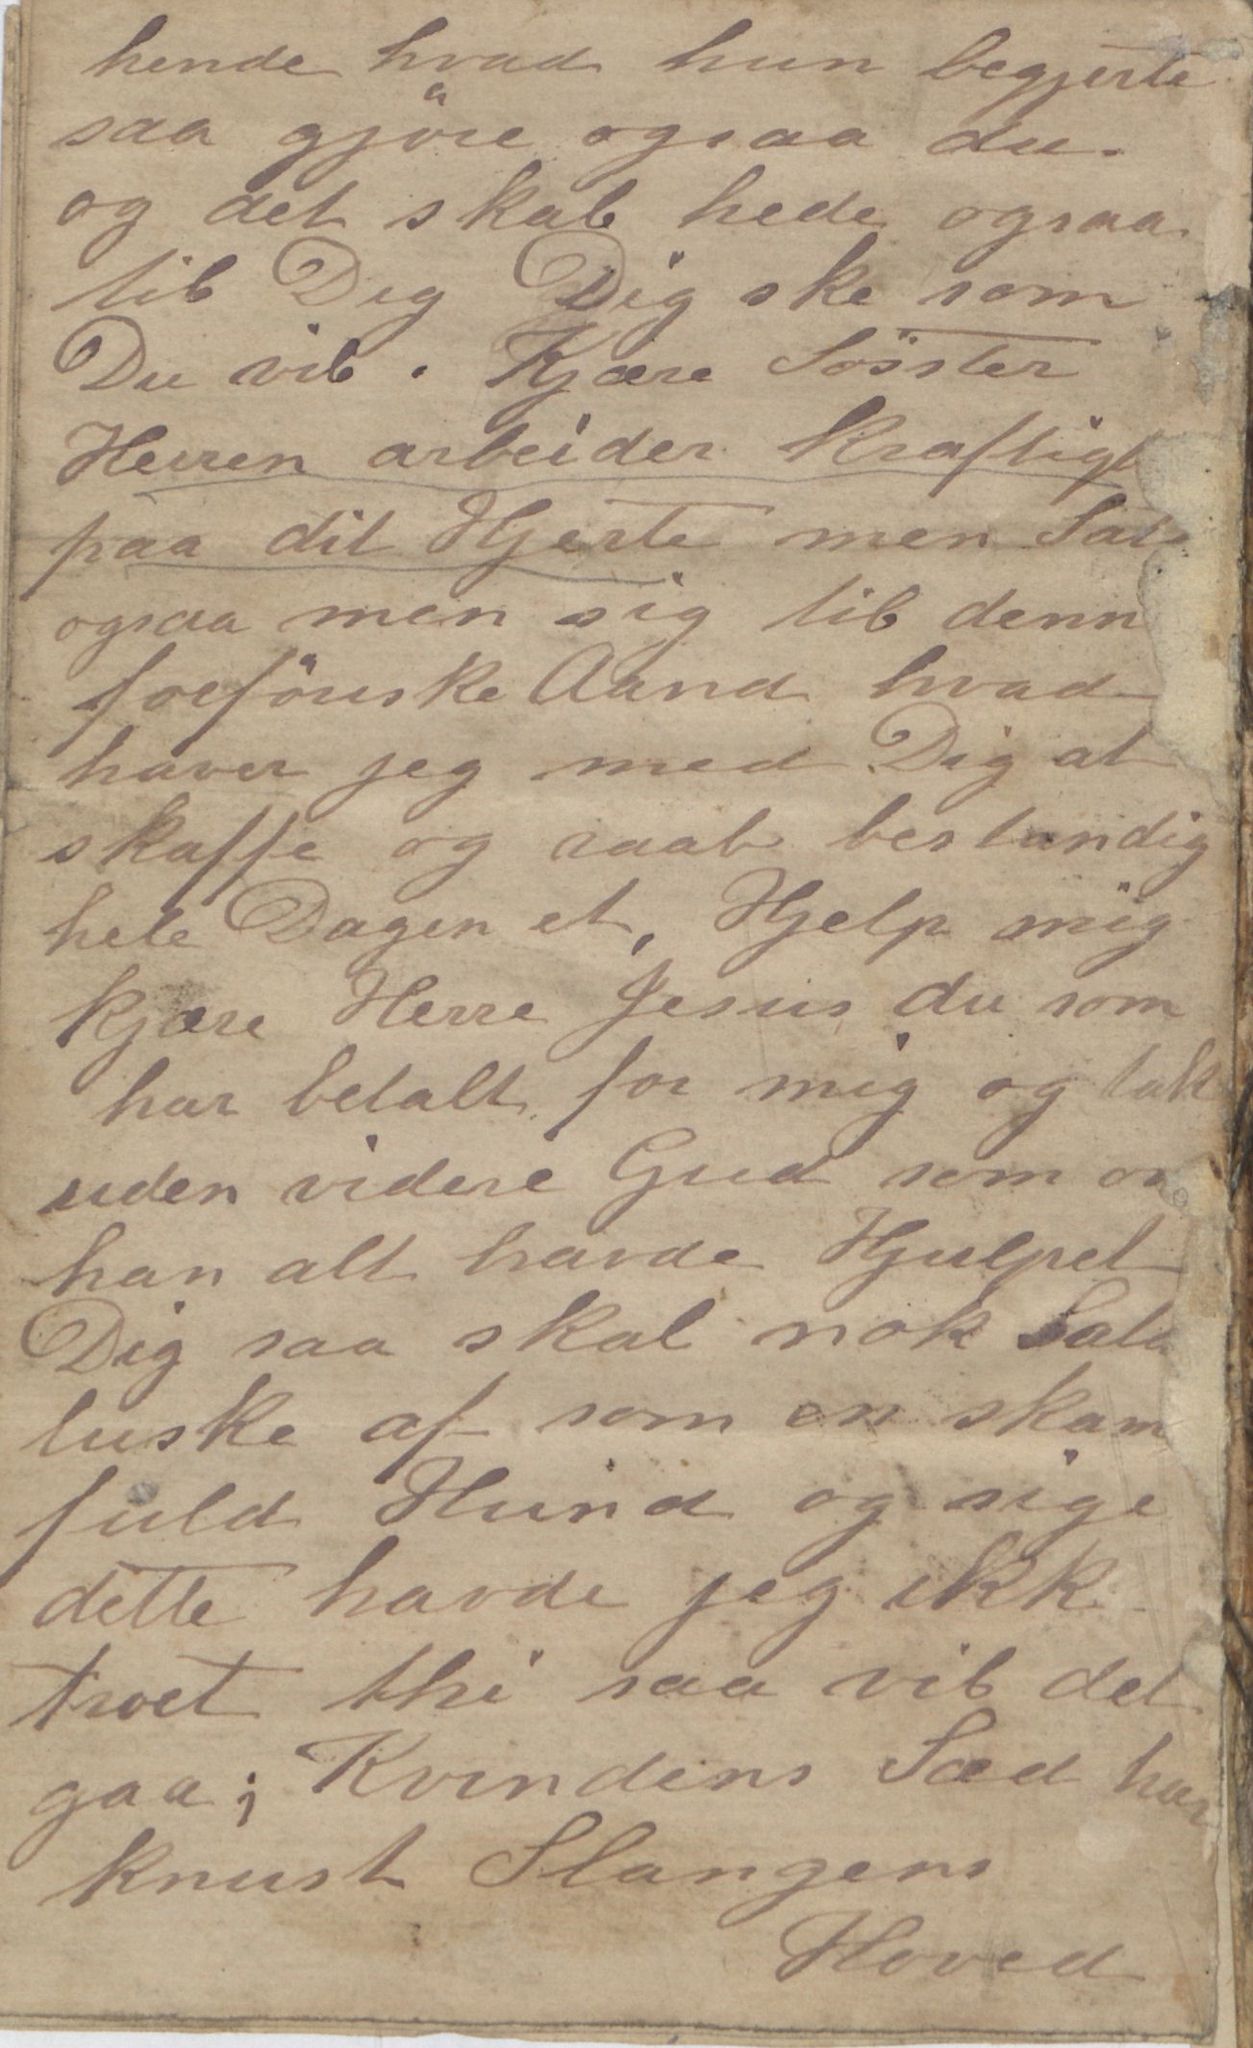 hende hvad hun begjerte
saa gjöre ogsaa du.
og det skal hede ogsaa
til Dig Dig ske som
Du vil. Kjære Söster
Herren arbeider kraftigt
paa dit Hjerte men Sat
ogsaa men sig til denn
forföriske Aand hvad
haver jeg med Dig at
skaffe og raab bestandig
hele Dagen et, Hjelp mig
kjære Herre Jesus du som
har betalt for mig og tak
uden videre Gud som o
han alt havde Hjulpet
Dig saa skal nok Sata
luske af som en skam
fuld Hund og sige
dette havde jeg ikk
troet thi saa vil det
gaa; Kvindens Sæd har
knust Slangens
Hoved